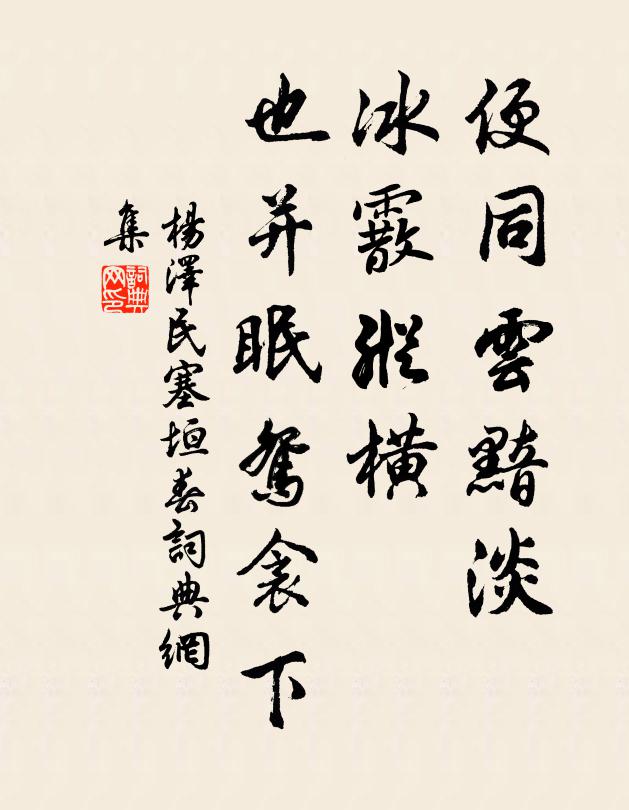 便同雲黯淡
冰霰縱橫
也并眠鴛衾下
楊澤民塞垣春詞典網
集
詞典網印